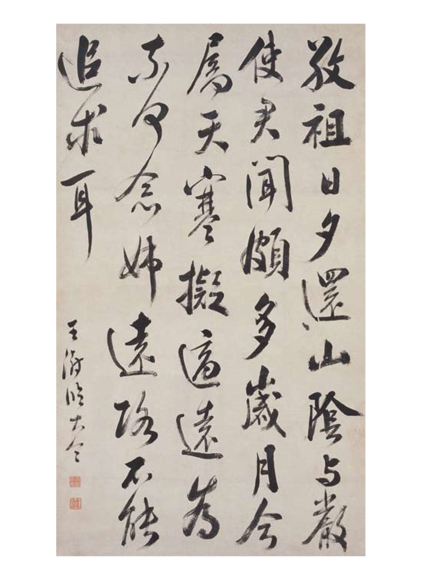 敬祖日夕還山陰与嚴
使君聞頗多歲月今
屬天寒擬適遠為
奈何念姊遠路不能
追求耳
王澍臨大令